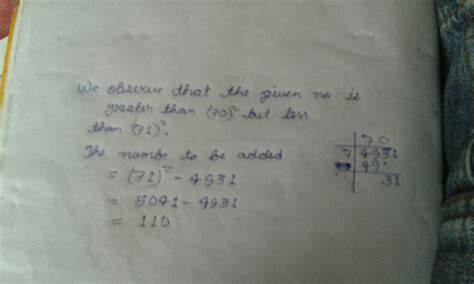 We observe that the given no. is
greater than (70)² but less
than (71)².
The numbe to be added
= (71)² - 4931
= 5041 - 4931
= 110
70
7 4931
49
31